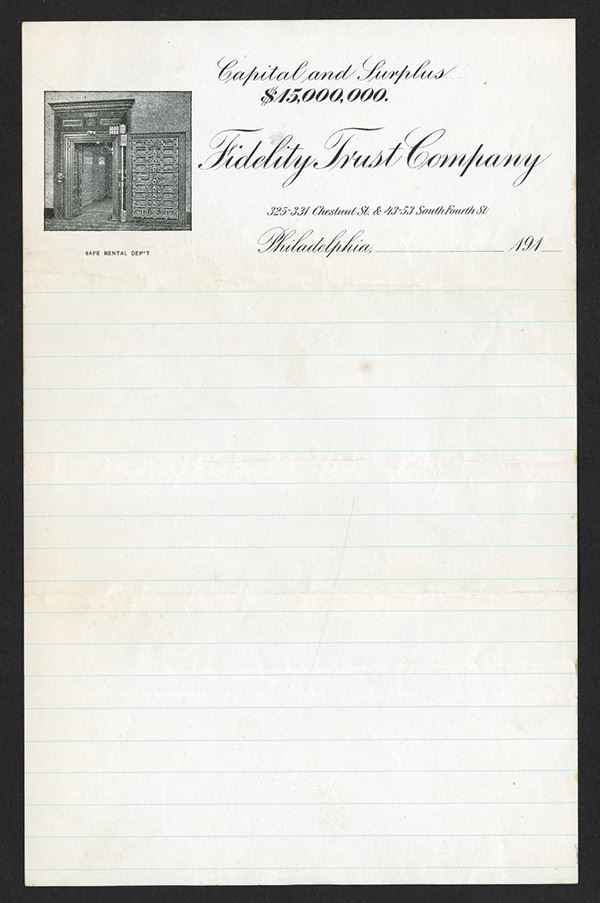 Capital and Surplus
$15,000,000.
Fidelity Trust Company
325-331 Chestnut St. & 43-53 South Fourth St.
Philadelphia, 191
SAFE RENTAL DEP'T